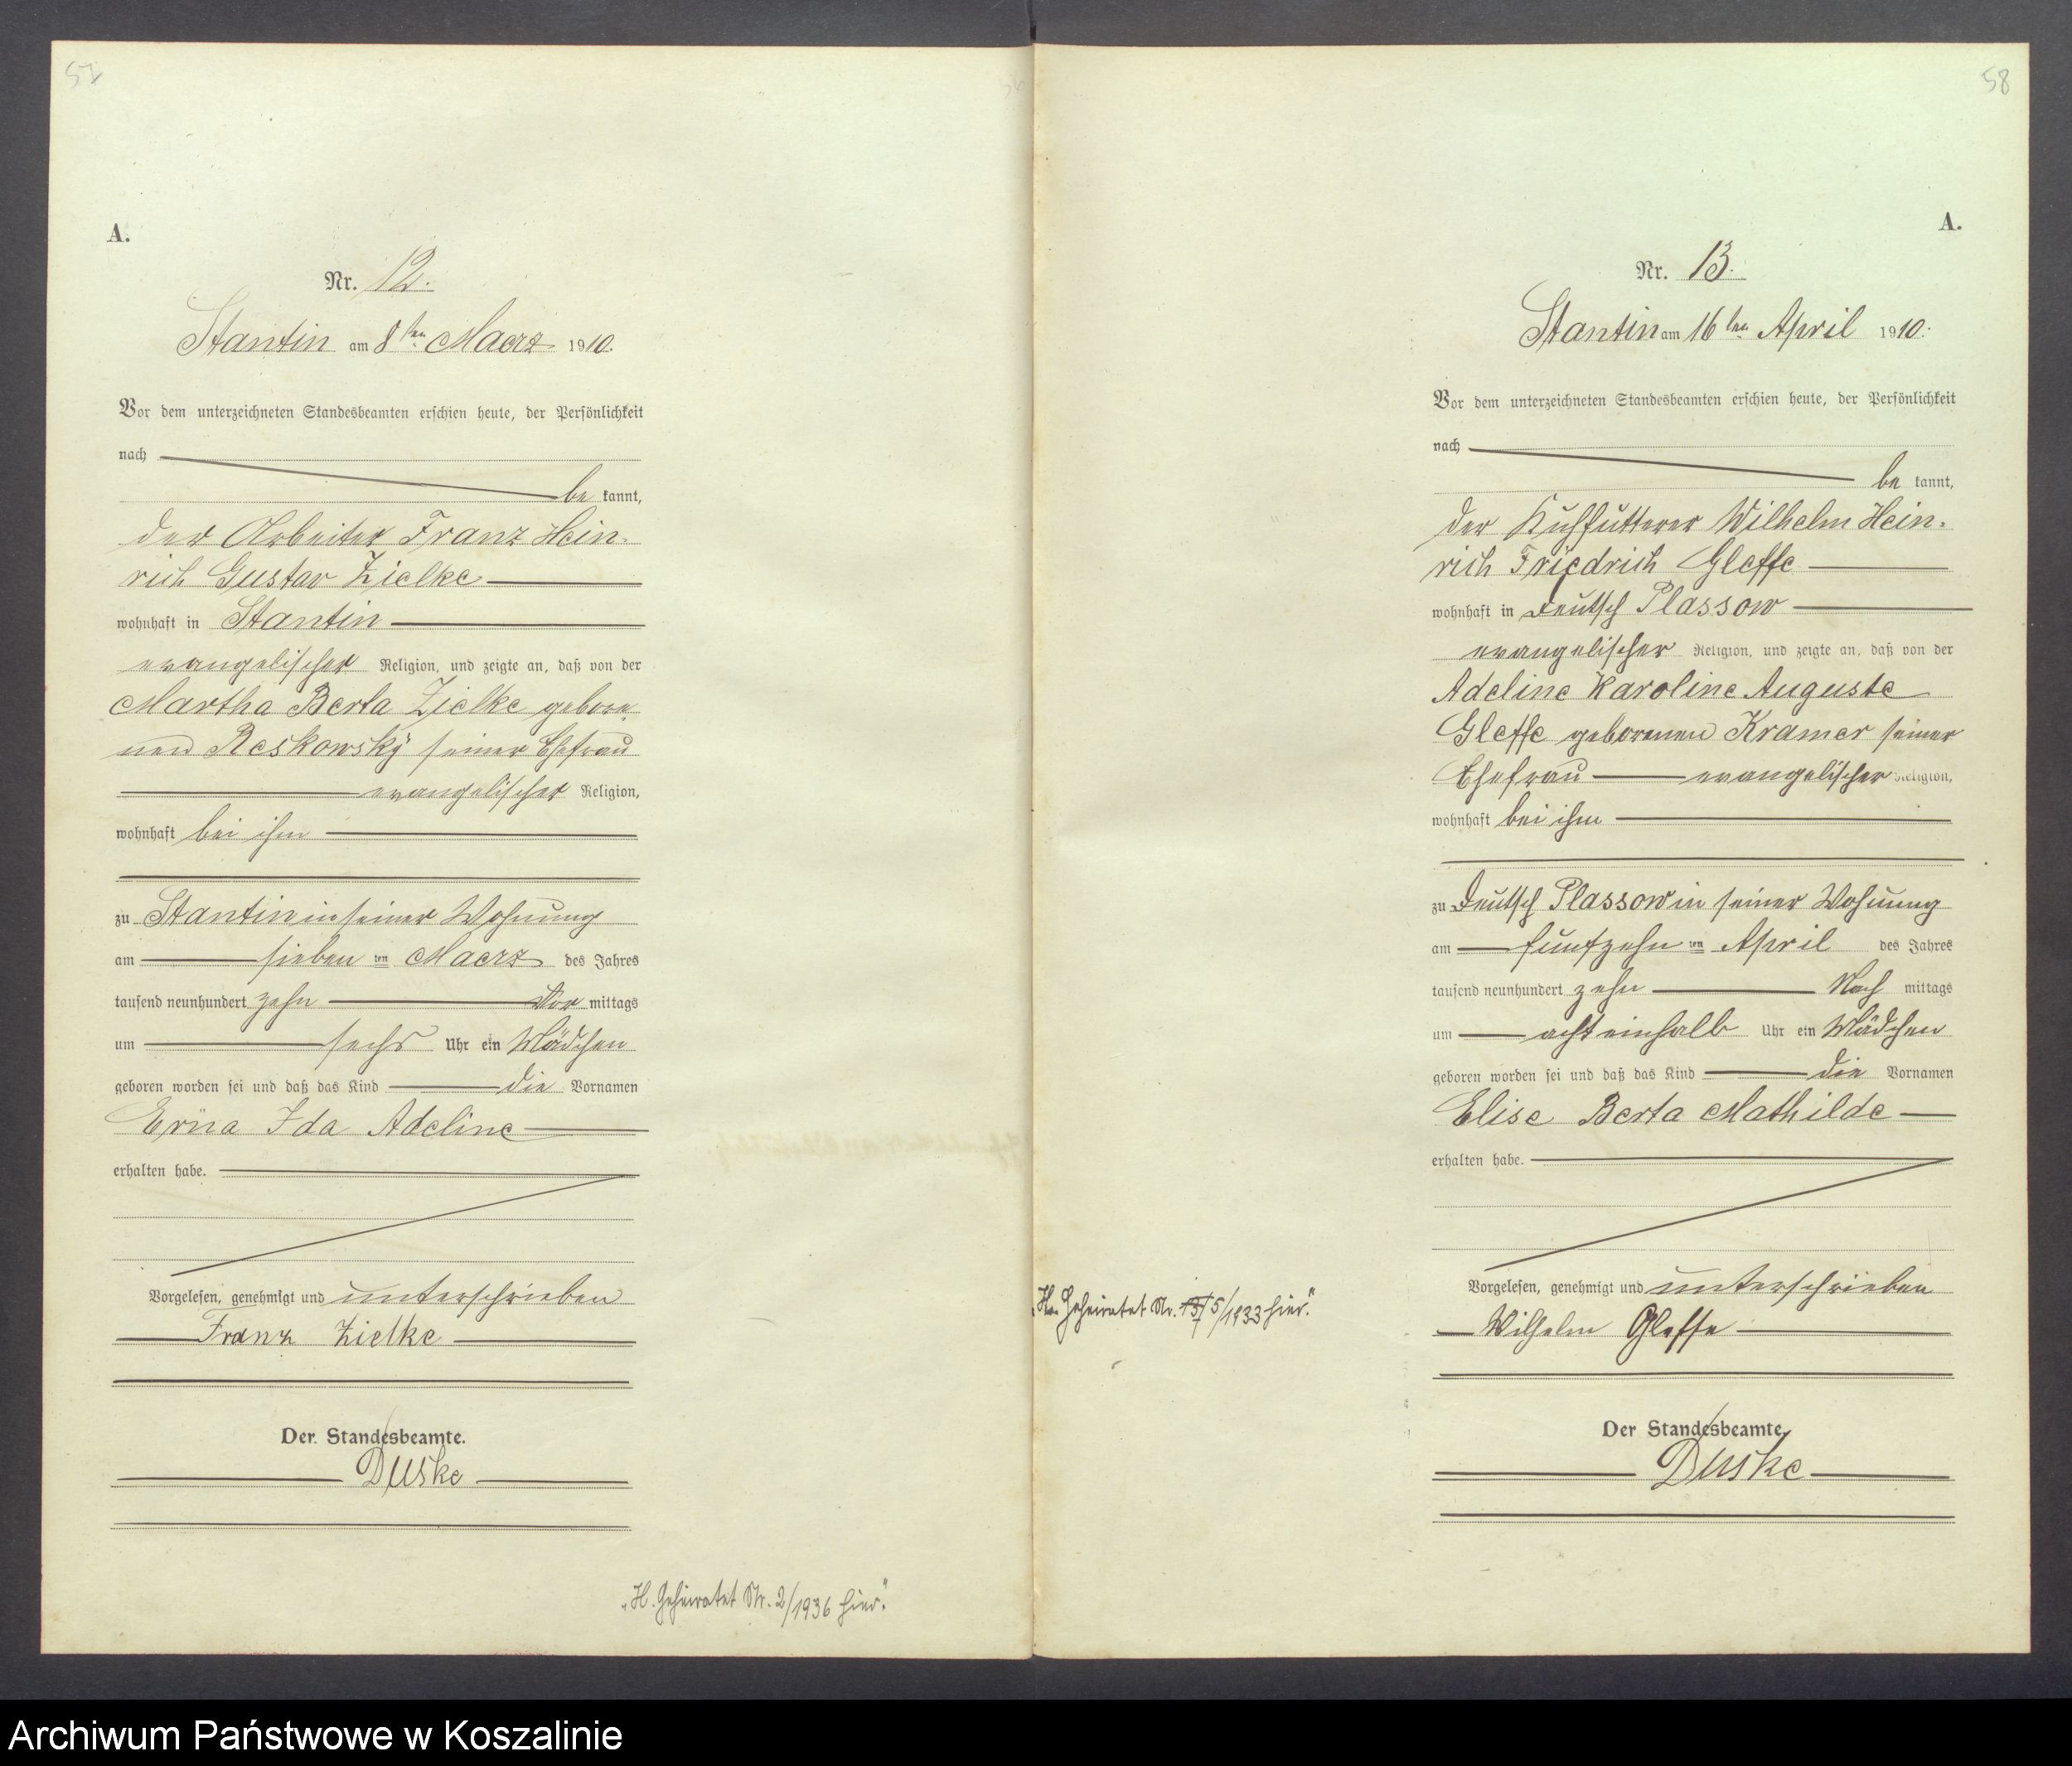 57
A.
Nr. 12.
Stantin am 8ten Maerz 1910.
Vor dem unterzeichneten Standesbeamten erschien heute, der Persönlichkeit
nach
be kannt,
der Arbeiter Franz Hein-
rich Gustav Zielke
wohnhaft in Stantin
evangelischer Religion, und zeigte an, daß von der
Martha Berta Zielke gebore-
nen Reskowsky seiner Ehefrau
evangelischer Religion,
wohnhaft bei ihm
zu Stantin in seiner Wohnung
am sieben ten Maerz des Jahres
tausend neunhundert zehn Vor mittags
um sechs Uhr ein Mädchen
geboren worden sei und daß das Kind die Vornamen
Erna Ida Adeline
erhalten habe.
Vorgelesen, genehmigt und unterschrieben
Franz Zielke
Der Standesbeamte.
Duske
„H. Geheiratet Nr. 2/1936 hier."
58
A.
Nr. 13.
Stantin am 16ten April 1910.
Vor dem unterzeichneten Standesbeamten erschien heute, der Persönlichkeit
nach
be kannt,
der Kuhfütterer Wilhelm Hein-
rich Friedrich Gleffe
wohnhaft in Deutsch Plassow
evangelischer Religion, und zeigte an, daß von der
Adeline Karoline Auguste
Gleffe geborenen Kramer seiner
Ehefrau evangelischer Religion,
wohnhaft bei ihm
zu Deutsch Plassow in seiner Wohnung
am fünfzehn ten April des Jahres
tausend neunhundert zehn Nach mittags
um acht einhalb Uhr ein Mädchen
geboren worden sei und daß das Kind die Vornamen
Elise Berta Mathilde
erhalten habe.
Vorgelesen, genehmigt und unterschrieben
Wilhelm Gleffe
„H. Geheiratet Nr. 5/1933 hier."
Der Standesbeamte.
Duske
Archiwum Państwowe w Koszalinie